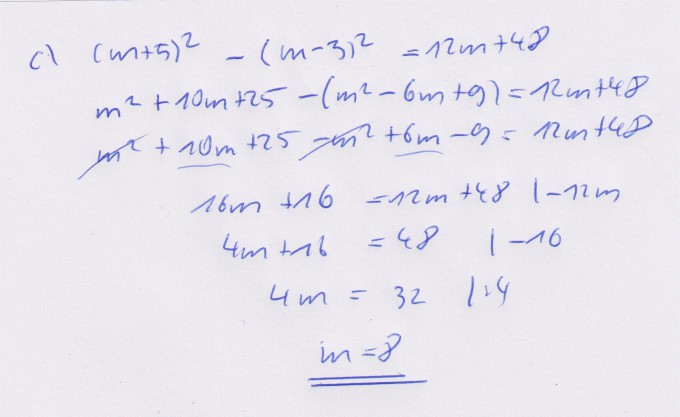 c) (m+5)² - (m-3)² = 12m+48
m² + 10m+25 -(m² - 6m +9) = 12m+48
m² + 10m +25 - m² + 6m - 9 = 12m+48
16m + 16 = 12m + 48 | -12m
4m + 16 = 48 | - 16
4m = 32 | :4
m = 8